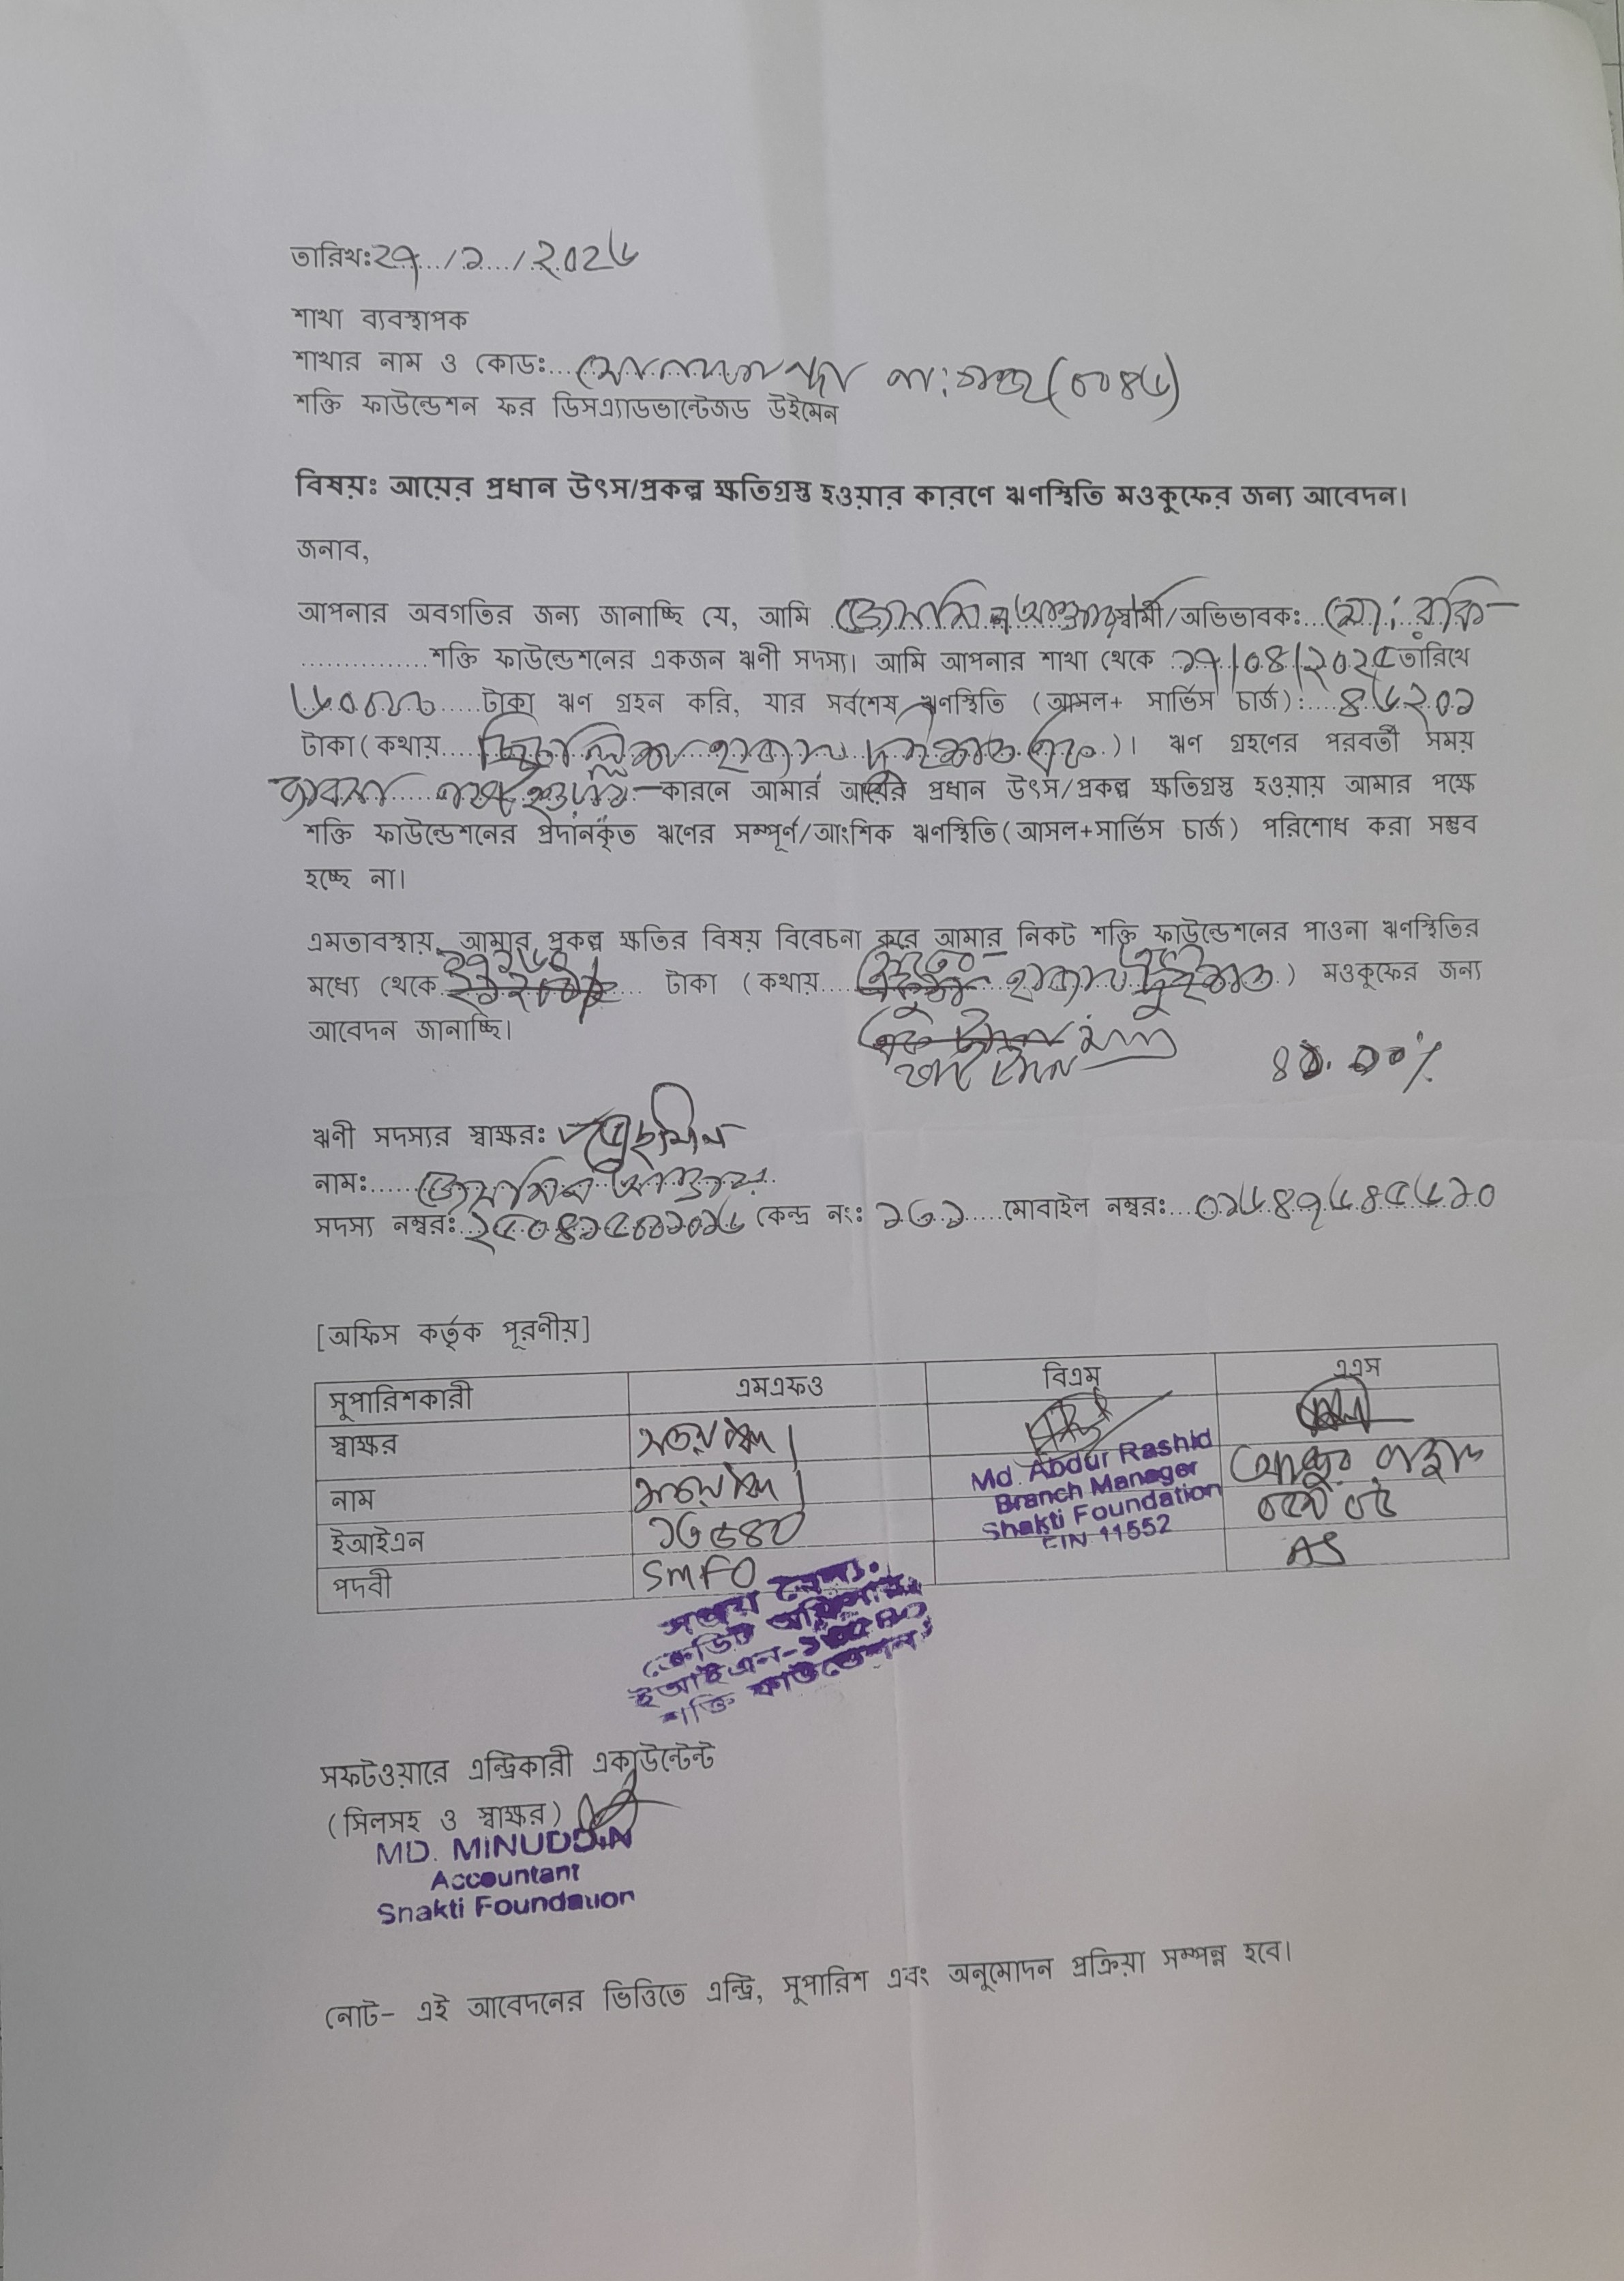 তারিখঃ২৭/১/২০২৬
শাখা ব্যবস্থাপক
শাখার নাম ও কোডঃ... (০০৪৬)
শক্তি ফাউন্ডেশন ফর ডিসএ্যাডভান্টেজড উইমেন
বিষয়ঃ আয়ের প্রধান উৎস/প্রকল্প ক্ষতিগ্রস্ত হওয়ার কারণে ঋণস্থিতি মওকুফের জন্য আবেদন।
জনাব,
আপনার অবগতির জন্য জানাচ্ছি যে, আমি জেসমিন আক্তার স্বামী/অভিভাবকঃ...মো: রকি
..............শক্তি ফাউন্ডেশনের একজন ঋণী সদস্য। আমি আপনার শাখা থেকে ১৭/০৪/২০২৫ তারিখে
৬০০০০.....টাকা ঋণ গ্রহন করি, যার সর্বশেষ ঋণস্থিতি (আসল+ সার্ভিস চার্জ):....৪৬২০১
টাকা(কথায়....ছিচল্লিশ হাজার দুইশত এক.)। ঋণ গ্রহণের পরবর্তী সময়
ব্যবসা নষ্ট হওয়ার কারনে আমার আয়ের প্রধান উৎস/প্রকল্প ক্ষতিগ্রস্ত হওয়ায় আমার পক্ষে
শক্তি ফাউন্ডেশনের প্রদানকৃত ঋণের সম্পূর্ণ/আংশিক ঋণস্থিতি(আসল+সার্ভিস চার্জ) পরিশোধ করা সম্ভব
হচ্ছে না।
এমতাবস্থায়, আমার প্রকল্প ক্ষতির বিষয় বিবেচনা করে আমার নিকট শক্তি ফাউন্ডেশনের পাওনা ঋণস্থিতির
মধ্যে থেকে টাকা (কথায়.... হাজার ) মওকুফের জন্য
আবেদন জানাচ্ছি।
ঋণী সদস্যর স্বাক্ষরঃ
নামঃ......জেসমিন আক্তার
সদস্য নম্বরঃ কেন্দ্র নংঃ ১৩১.....মোবাইল নম্বরঃ...০১৬৪৭৬৪৫৬১০
[অফিস কর্তৃক পূরণীয়]
সুপারিশকারী এমএফও বিএম এএস
স্বাক্ষর
নাম
Md. Abdur Rashid
Branch Manager
Shakti Foundation
EIN 11552
ইআইএন
পদবী SMFO AS
ক্রেডিট অফিসার
ইআইএন-
শক্তি ফাউন্ডেশন
সফটওয়ারে এন্ট্রিকারী একাউন্টেন্ট
(সিলসহ ও স্বাক্ষর)
MD. MINUDDIN
Accountant
Shakti Foundation
নোট- এই আবেদনের ভিত্তিতে এন্ট্রি, সুপারিশ এবং অনুমোদন প্রক্রিয়া সম্পন্ন হবে।